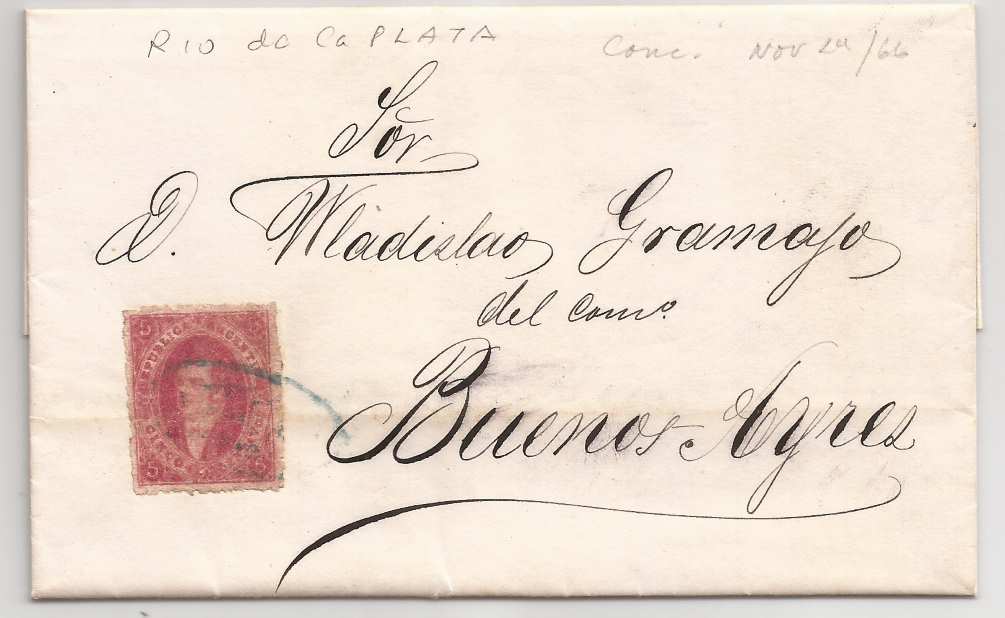 RIO de la PLATA Conc. NOV 24/66
Sör
D. Wladislao Gramajo
del Como.
Buenos Ayres
5 5
REPUBLICA ARGENTINA
5 5